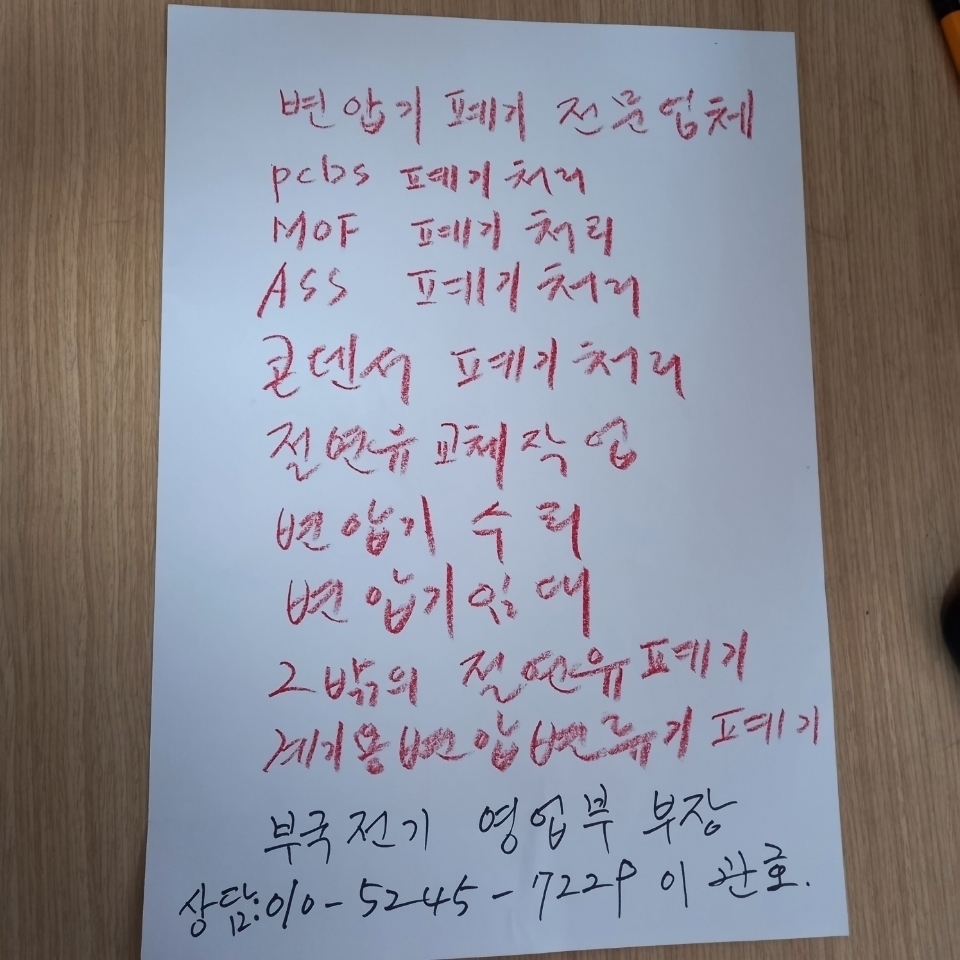 변압기 폐기 전문업체
pcbs 폐기처리
MOF 폐기처리
ASS 폐기처리
콘덴서 폐기처리
절연유 교체작업
변압기 수리
변압기임대
그밖의 절연유폐기
계기용변압변류기 폐기
부국전기 영업부 부장
상담:010-5245-7229 이관호.